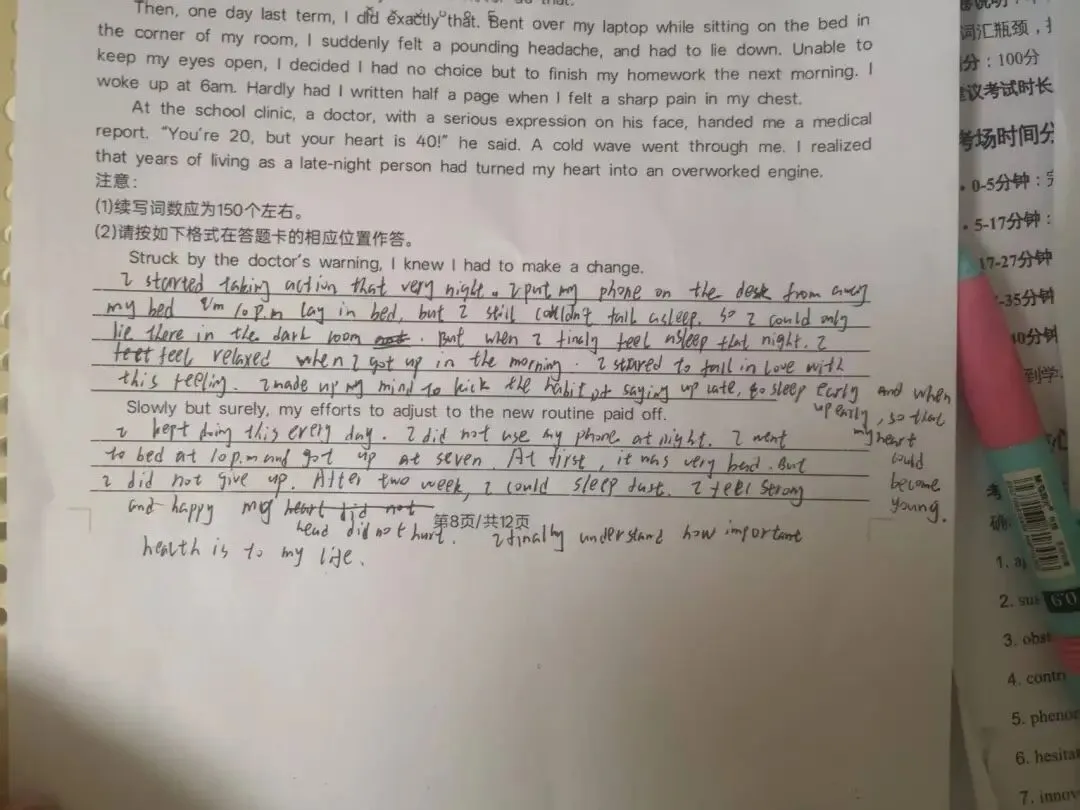 Then, one day last term, I did exactly that. Bent over my laptop while sitting on the bed in
the corner of my room, I suddenly felt a pounding headache, and had to lie down. Unable to
keep my eyes open, I decided I had no choice but to finish my homework the next morning. I
woke up at 6am. Hardly had I written half a page when I felt a sharp pain in my chest.
At the school clinic, a doctor, with a serious expression on his face, handed me a medical
report. "You're 20, but your heart is 40!" he said. A cold wave went through me. I realized
that years of living as a late-night person had turned my heart into an overworked engine.
注意:
(1)续写词数应为150个左右。
(2)请按如下格式在答题卡的相应位置作答。
Struck by the doctor's warning, I knew I had to make a change.
I started taking action that very night. I put my phone on the desk from away
my bed I'm 10 p.m lay in bed, but I still couldn't fall asleep. so I could only
lie there in the dark room. But when I finaly feel asleep that night. I
feel relaxed when I got up in the morning. I stared to fall in love with
this feeling. I made up my mind to kick the habit of saying up late, go sleep early and when
up early, so that
my heart
could
become
young.
Slowly but surely, my efforts to adjust to the new routine paid off.
I kept doing this every day. I did not use my phone at night. I went
to bed at 10 p.m and got up at seven. At first, it was very bad. But
I did not give up. After two week, I could sleep fast. I feel strong
and happy my heart did not
第8页/共12页
head did not hurt. I finally understand how important
health is to my life.
词汇瓶颈,
分:100分
建议考试时长
考场时间分
• 0-5分钟:
• 5-17分钟:
17-27分钟
-35分钟
40分钟
到学
考
确
1. a
2. su
3. obs
4. contr
5. pheno
6. hesita
7. innov